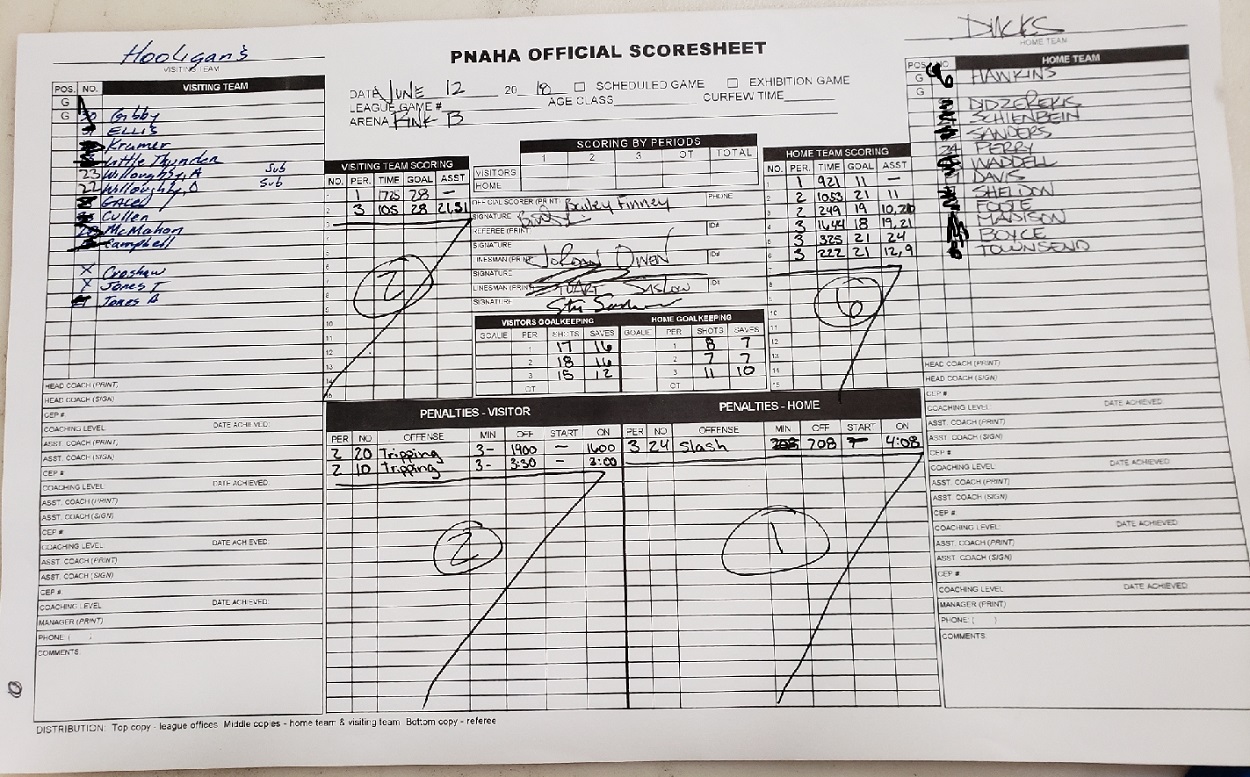 Hooligan's
VISITING TEAM
PNAHA OFFICIAL SCORESHEET
DUCKS
HOME TEAM
DATE JUNE 12 20 18 SCHEDULED GAME EXHIBITION GAME
LEAGUE GAME # AGE CLASS CURFEW TIME
ARENA RINK B
POS. NO. VISITING TEAM
G
G Gibby
ELLIS
Kramer
Little Thunder
23 Willoughby, A Sub
22 Willoughby, D Sub
Cullen
McMahon
Campbell
X Crashaw
X Jones T
Jones A
HEAD COACH (PRINT)
HEAD COACH (SIGN)
CEP #
COACHING LEVEL DATE ACHIEVED:
ASST. COACH (PRINT)
ASST. COACH (SIGN)
CEP #
COACHING LEVEL DATE ACHIEVED:
ASST. COACH (PRINT)
ASST. COACH (SIGN)
CEP #
COACHING LEVEL DATE ACHIEVED:
ASST. COACH (PRINT)
ASST. COACH (SIGN)
CEP #
COACHING LEVEL DATE ACHIEVED:
MANAGER (PRINT)
PHONE: ( )
COMMENTS:
VISITING TEAM SCORING
NO. PER. TIME GOAL ASST
1 1 1725 28 -
2 3 105 28 21,51
2
SCORING BY PERIODS
1 2 3 OT TOTAL
VISITORS
HOME
OFFICIAL SCORER (PRINT) Bailey Finney PHONE
SIGNATURE
REFEREE (PRINT) ID#
SIGNATURE
LINESMAN (PRINT) JoRdan Owen ID#
SIGNATURE
LINESMAN (PRINT) ID#
SIGNATURE
VISITORS GOALKEEPING
GOALIE PER SHOTS SAVES
1 17 16
2 18 16
3 15 12
OT
HOME GOALKEEPING
GOALIE PER SHOTS SAVES
1 8 7
2 7 7
3 11 10
OT
HOME TEAM SCORING
NO. PER. TIME GOAL ASST
1 1 921 11 -
2 2 1053 21 11
3 2 249 19 10,20
4 3 1644 18 19,21
5 3 325 21 24
6 3 222 21 12,9
6
POS. NO. HOME TEAM
G HAWKINS
G
DIDZEREKIS
SCHIENBEIN
SANDERS
24 PERRY
WADDELL
DAVIS
SHELDON
FOOTE
MADISON
BOYCE
TOWNSEND
HEAD COACH (PRINT)
HEAD COACH (SIGN)
CEP #
COACHING LEVEL: DATE ACHIEVED:
ASST. COACH (PRINT)
ASST. COACH (SIGN)
CEP #
COACHING LEVEL: DATE ACHIEVED:
ASST. COACH (PRINT)
ASST. COACH (SIGN)
CEP #
COACHING LEVEL: DATE ACHIEVED:
ASST. COACH (PRINT)
ASST. COACH (SIGN)
CEP #
COACHING LEVEL DATE ACHIEVED:
MANAGER (PRINT)
PHONE: ( )
COMMENTS:
PENALTIES - VISITOR
PER NO OFFENSE MIN OFF START ON
2 20 Tripping 3- 1900 - 1600
2 10 tripping 3- 3:30 - 3:00
2
PENALTIES - HOME
PER NO OFFENSE MIN OFF START ON
3 24 Slash 208 4:08
1
DISTRIBUTION: Top copy - league offices Middle copies - home team & visiting team Bottom copy - referee